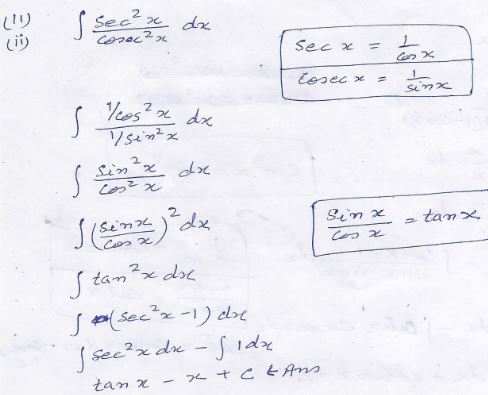 (11)
(ii) ∫ sec²x / cosec²x dx
sec x = 1/cos x
cosec x = 1/sin x
∫ (1/cos²x) / (1/sin²x) dx
∫ sin²x / cos²x dx
∫ (sin x / cos x)² dx
sin x / cos x = tan x
∫ tan²x dx
∫ (sec²x - 1) dx
∫ sec²x dx - ∫ 1 dx
tan x - x + C Ans